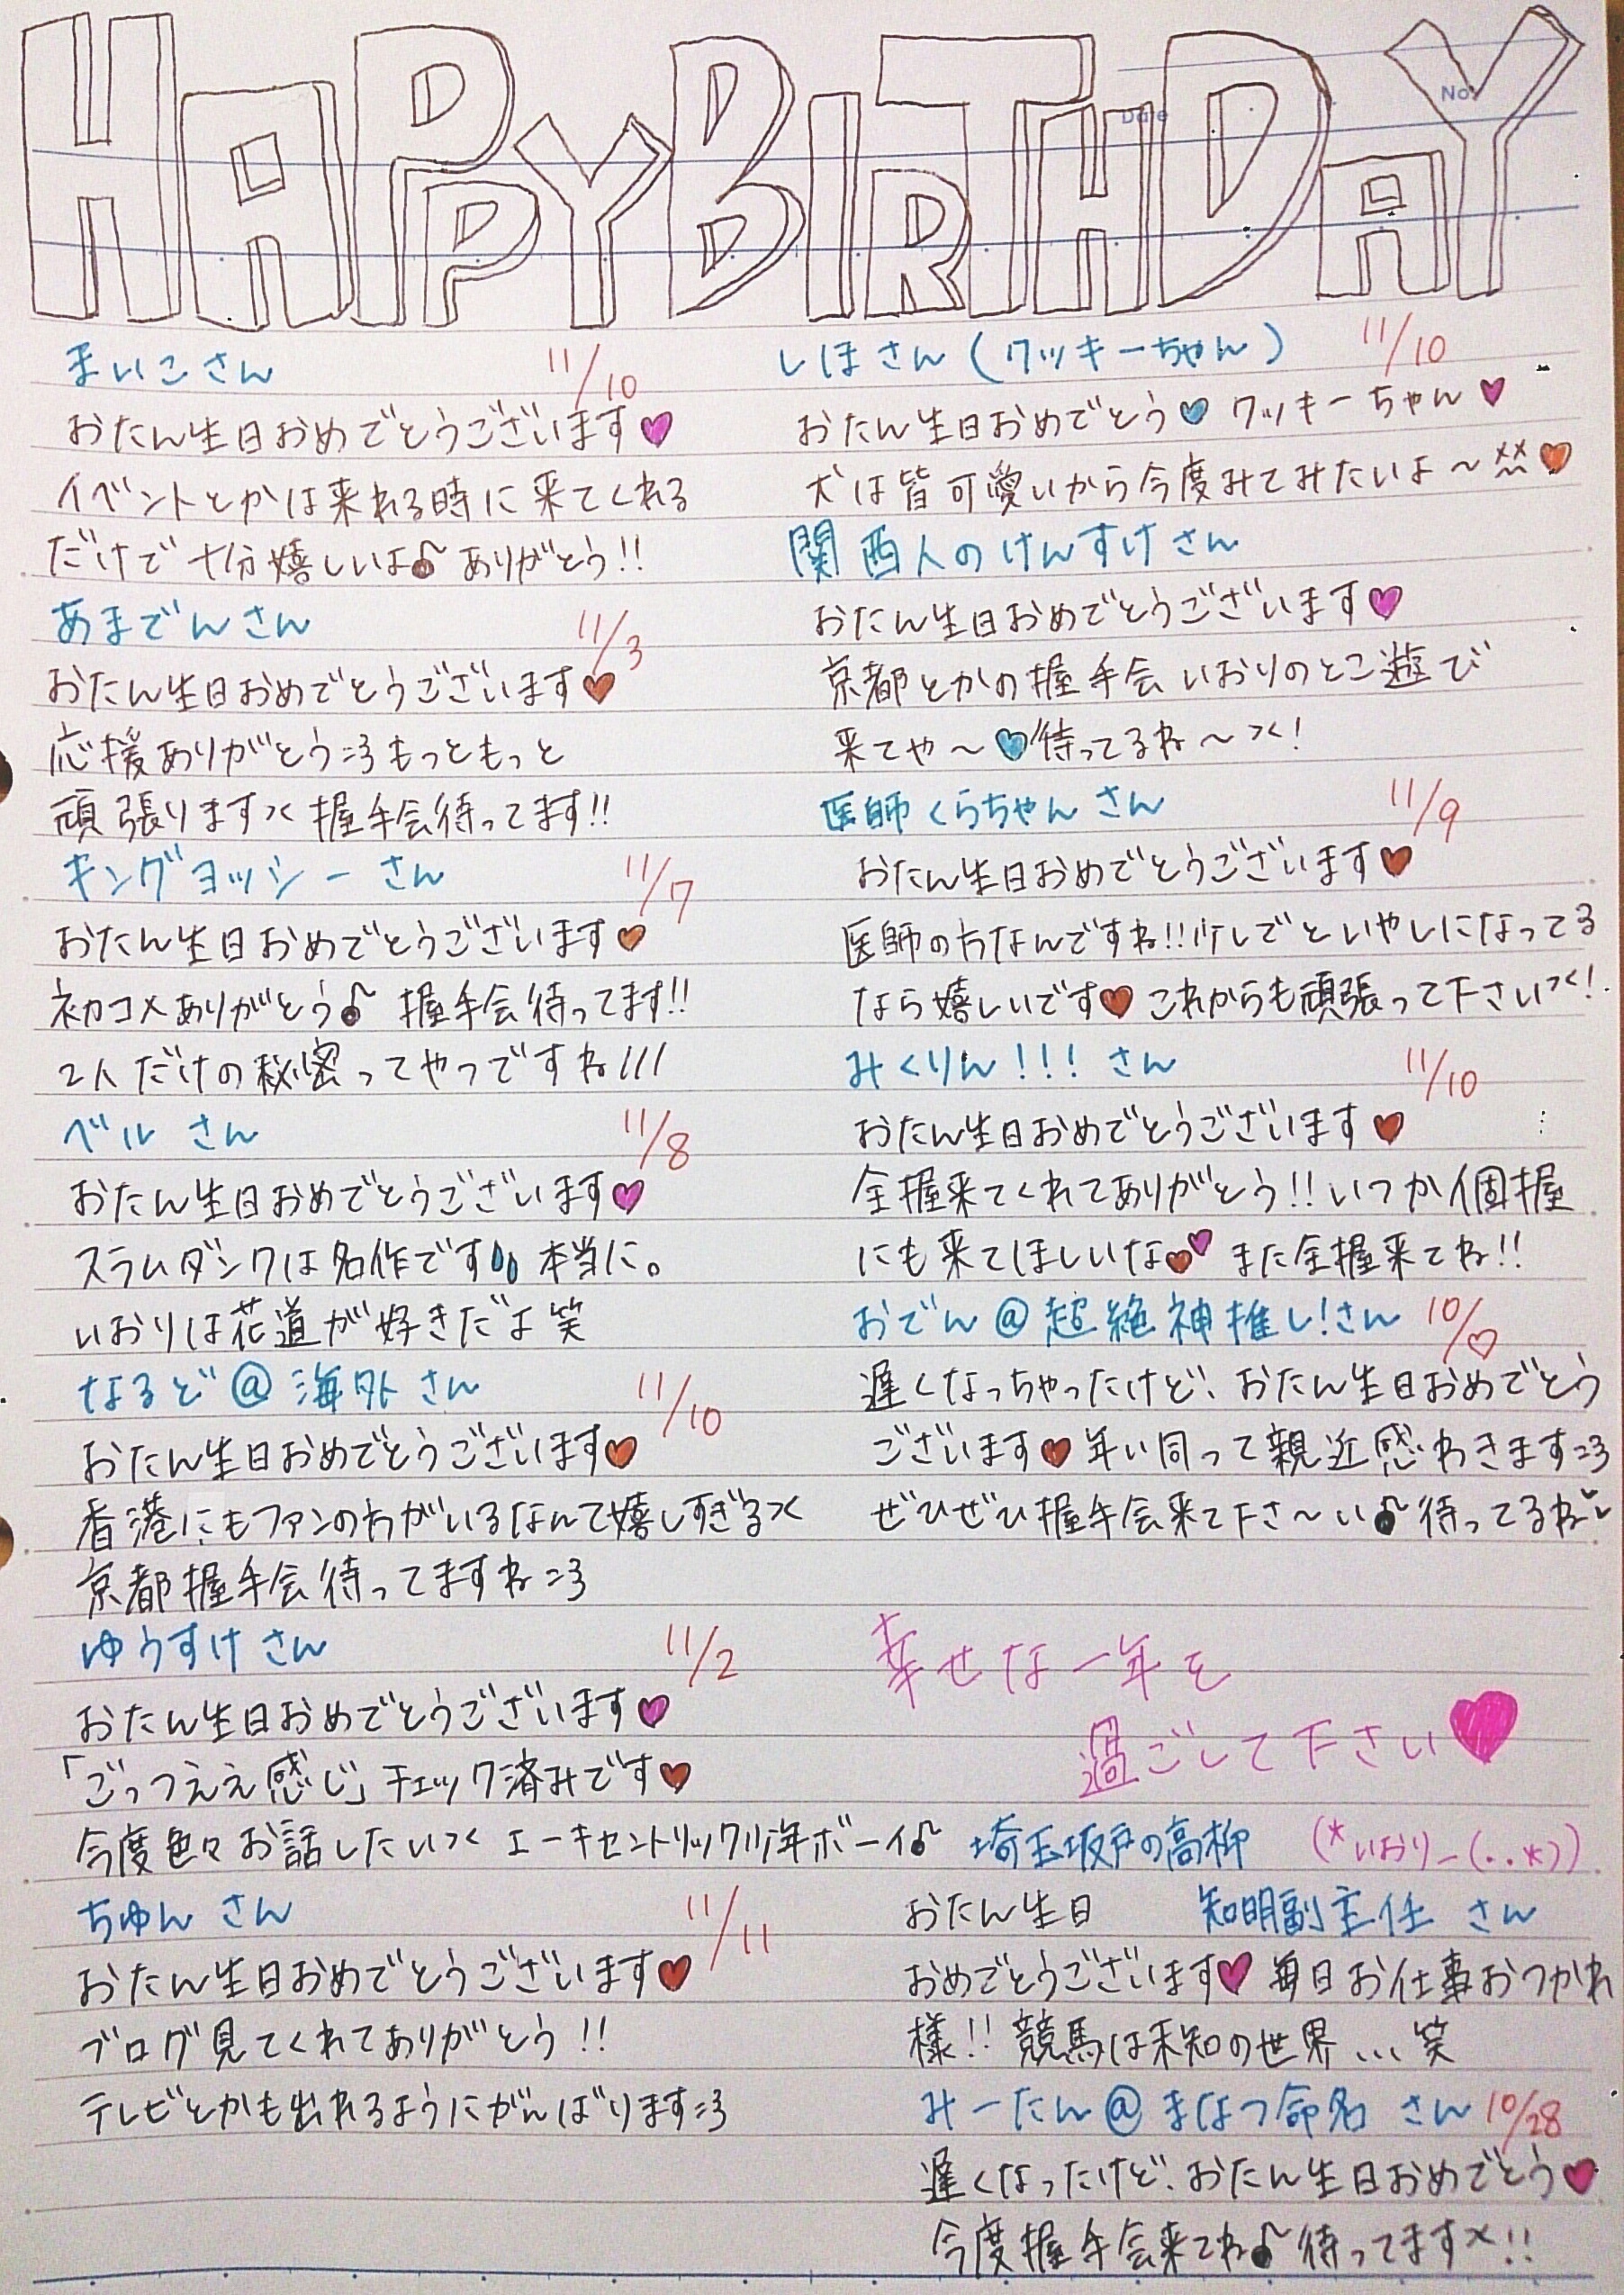 HAPPY BIRTHDAY
No.
Date
まいこさん 11/10
おたん生日おめでとうございます♥
イベントとかは来れる時に来てくれる
だけで十分嬉しいよ♪ ありがとう!!
あまでんさん 11/3
おたん生日おめでとうございます♥
応援ありがとう=3もっともっと
頑張ります 握手会待ってます!!
キングヨッシーさん 11/7
おたん生日おめでとうございます♥
初コメありがとう♪ 握手会待ってます!!
2人だけの秘密ってやつですね///
ベルさん 11/8
おたん生日おめでとうございます♥
スラムダンクは名作です 本当に。
いおりは花道が好きだよ笑
なるど@海外さん 11/10
おたん生日おめでとうございます♥
香港にもファンの方がいるなんて嬉しすぎる
京都握手会待ってますね=3
ゆうすけさん 11/2
おたん生日おめでとうございます♥
「ごっつええ感じ」チェック済みです♥
今度色々お話したい エーキセントリック少年ボーイ♪
ちゅんさん 11/11
おたん生日おめでとうございます♥
ブログ見てくれてありがとう!!
テレビとかも出れるようにがんばります=3
しほさん(クッキーちゃん) 11/10
おたん生日おめでとう♥クッキーちゃん♥
犬は皆可愛いから今度みてみたいよ〜♥
関西人のけんすけさん
おたん生日おめでとうございます♥
京都とかの握手会いおりのとこ遊び
来てや〜♥待ってるね〜!
医師くらちゃんさん 11/9
おたん生日おめでとうございます♥
医師の方なんですね!!少しでもいやしになってる
なら嬉しいです♥これからも頑張って下さい!
みくりん!!!さん 11/10
おたん生日おめでとうございます♥
全握来てくれてありがとう!!いつか個握
にも来てほしいな♥♥ また全握来てね!!
おでん@超絶神推し!さん 10/♡
遅くなっちゃったけど、おたん生日おめでとう
ございます♥年い同って親近感わきます=3
ぜひぜひ握手会来て下さ〜い♪待ってるね
幸せな一年を
過ごして下さい♥
(*いおりー(..*))
埼玉坂戸の高柳
知明副主任 さん
おたん生日
おめでとうございます♥毎日お仕事おつかれ
様!!競馬は未知の世界...笑
みーたん@まなつ命名さん 10/28
遅くなったけど、おたん生日おめでとう♥
今度握手会来てね♪待ってます!!